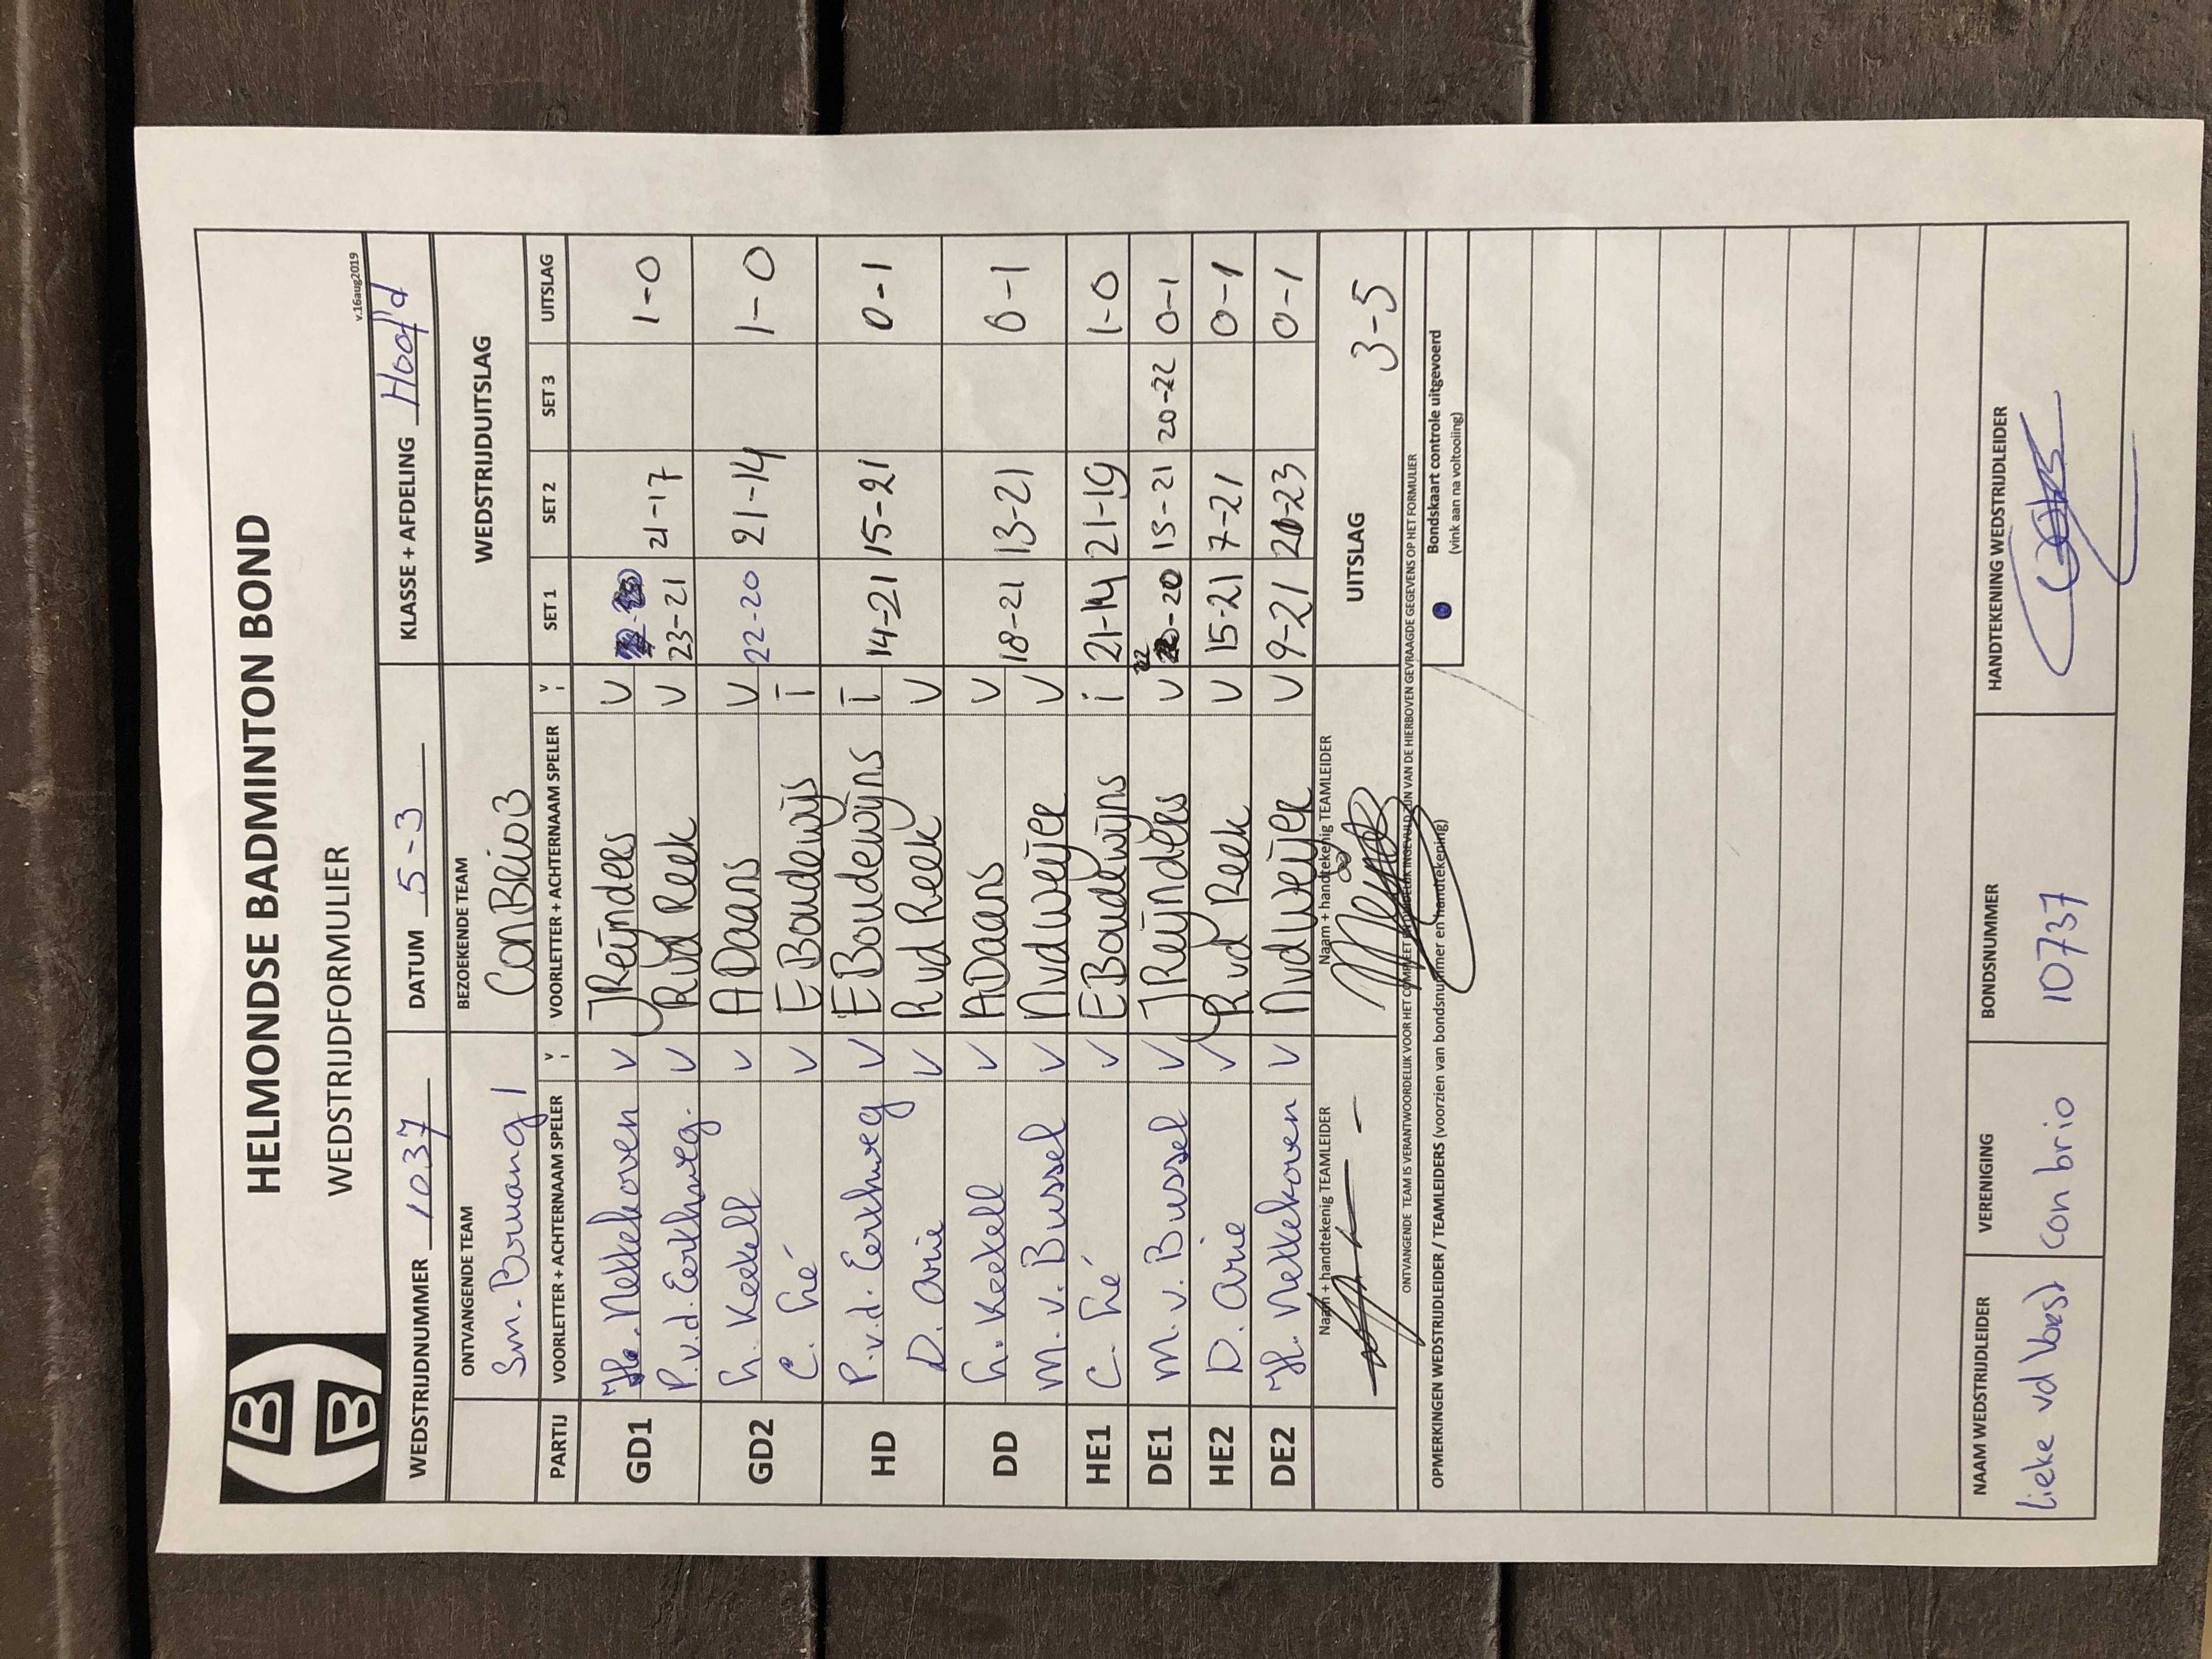 HELMONDSE BADMINTON BOND
WEDSTRIJDFORMULIER
v.16aug2019
WEDSTRIJDNUMMER 1037 DATUM 5-3 KLASSE + AFDELING Hoofd
ONTVANGENDE TEAM BEZOEKENDE TEAM WEDSTRIJDUITSLAG
Con Brio 3
PARTIJ VOORLETTER + ACHTERNAAM SPELER V I VOORLETTER + ACHTERNAAM SPELER V I SET 1 SET 2 SET 3 UITSLAG
GD1 Nekkehoven V J Reijnders V
P.v.d. Eerkhweg. V R vd Reek V 23-21 21-17 1-0
GD2 h. Keekell V A Daans V 22-20 21-14 1-0
C. hé V E Boudewijs I
HD P.v.d. Eerkhweg V E Boudewijns I 14-21 15-21 0-1
D. Arie V R vd Reek V
DD h. Keekell V A Daans V 18-21 13-21 0-1
M. v. Bussel V N vd Weijer V
HE1 C. hé V E Boudewijns i 21-14 21-19 1-0
DE1 M. v. Bussel V J Reijnders V 22-20 15-21 20-22 0-1
HE2 D. Arie V R vd Reek V 15-21 7-21 0-1
DE2 H. Nekkehoven V N vd Weijer V 9-21 20-23 0-1
Naam + handtekenig TEAMLEIDER Naam + handtekenig TEAMLEIDER UITSLAG 3-5
ONTVANGENDE TEAM IS VERANTWOORDELIJK VOOR HET COMPLEET EN DUIDELIJK INGEVULD ZIJN VAN DE HIERBOVEN GEVRAAGDE GEGEVENS OP HET FORMULIER
OPMERKINGEN WEDSTRIJDLEIDER / TEAMLEIDERS (voorzien van bondsnummer en handtekening)
Bondskaart controle uitgevoerd
(vink aan na voltooiing)
NAAM WEDSTRIJDLEIDER VERENIGING BONDSNUMMER HANDTEKENING WEDSTRIJDLEIDER
Lieke vd con brio 10737